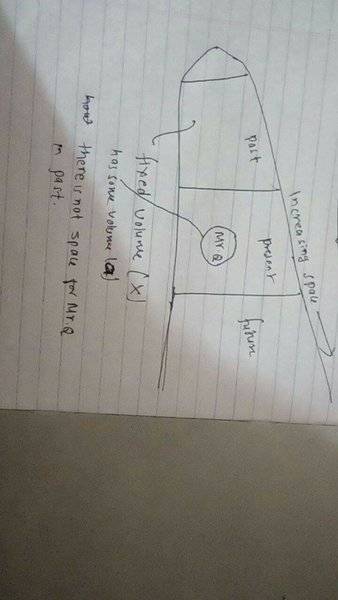 Increasing space
past
present
future
Mr.Q
fixed volume (x)
has some volume (a)
there is not space for Mr.Q
in past.